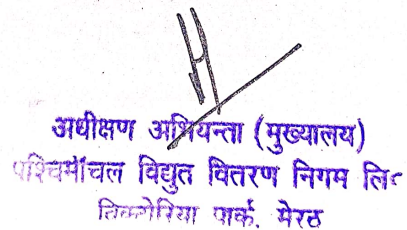 अधीक्षण अभियन्ता (मुख्यालय)
पश्चिमांचल विद्युत वितरण निगम लि०
विक्टोरिया पार्क, मेरठ